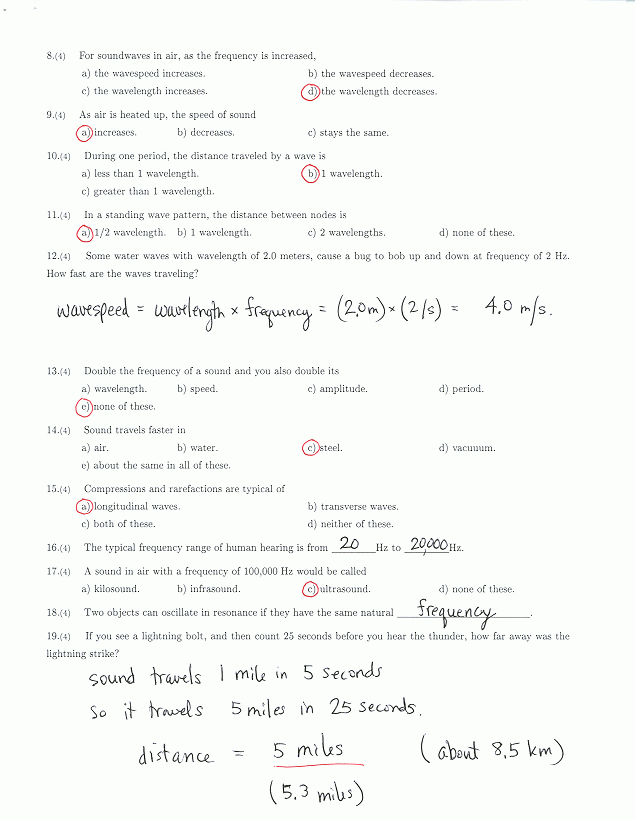 8.(4) For soundwaves in air, as the frequency is increased,
a) the wavespeed increases. b) the wavespeed decreases.
c) the wavelength increases. d) the wavelength decreases.
9.(4) As air is heated up, the speed of sound
a) increases. b) decreases. c) stays the same.
10.(4) During one period, the distance traveled by a wave is
a) less than 1 wavelength. b) 1 wavelength.
c) greater than 1 wavelength.
11.(4) In a standing wave pattern, the distance between nodes is
a) 1/2 wavelength. b) 1 wavelength. c) 2 wavelengths. d) none of these.
12.(4) Some water waves with wavelength of 2.0 meters, cause a bug to bob up and down at frequency of 2 Hz.
How fast are the waves traveling?
wavespeed = wavelength × frequency = (2.0m)×(2/s) = 4.0 m/s.
13.(4) Double the frequency of a sound and you also double its
a) wavelength. b) speed. c) amplitude. d) period.
e) none of these.
14.(4) Sound travels faster in
a) air. b) water. c) steel. d) vacuum.
e) about the same in all of these.
15.(4) Compressions and rarefactions are typical of
a) longitudinal waves. b) transverse waves.
c) both of these. d) neither of these.
16.(4) The typical frequency range of human hearing is from 20 Hz to 20,000 Hz.
17.(4) A sound in air with a frequency of 100,000 Hz would be called
a) kilosound. b) infrasound. c) ultrasound. d) none of these.
18.(4) Two objects can oscillate in resonance if they have the same natural frequency.
19.(4) If you see a lightning bolt, and then count 25 seconds before you hear the thunder, how far away was the
lightning strike?
sound travels 1 mile in 5 seconds
so it travels 5 miles in 25 seconds.
distance = 5 miles (about 8.5 km)
(5.3 miles)